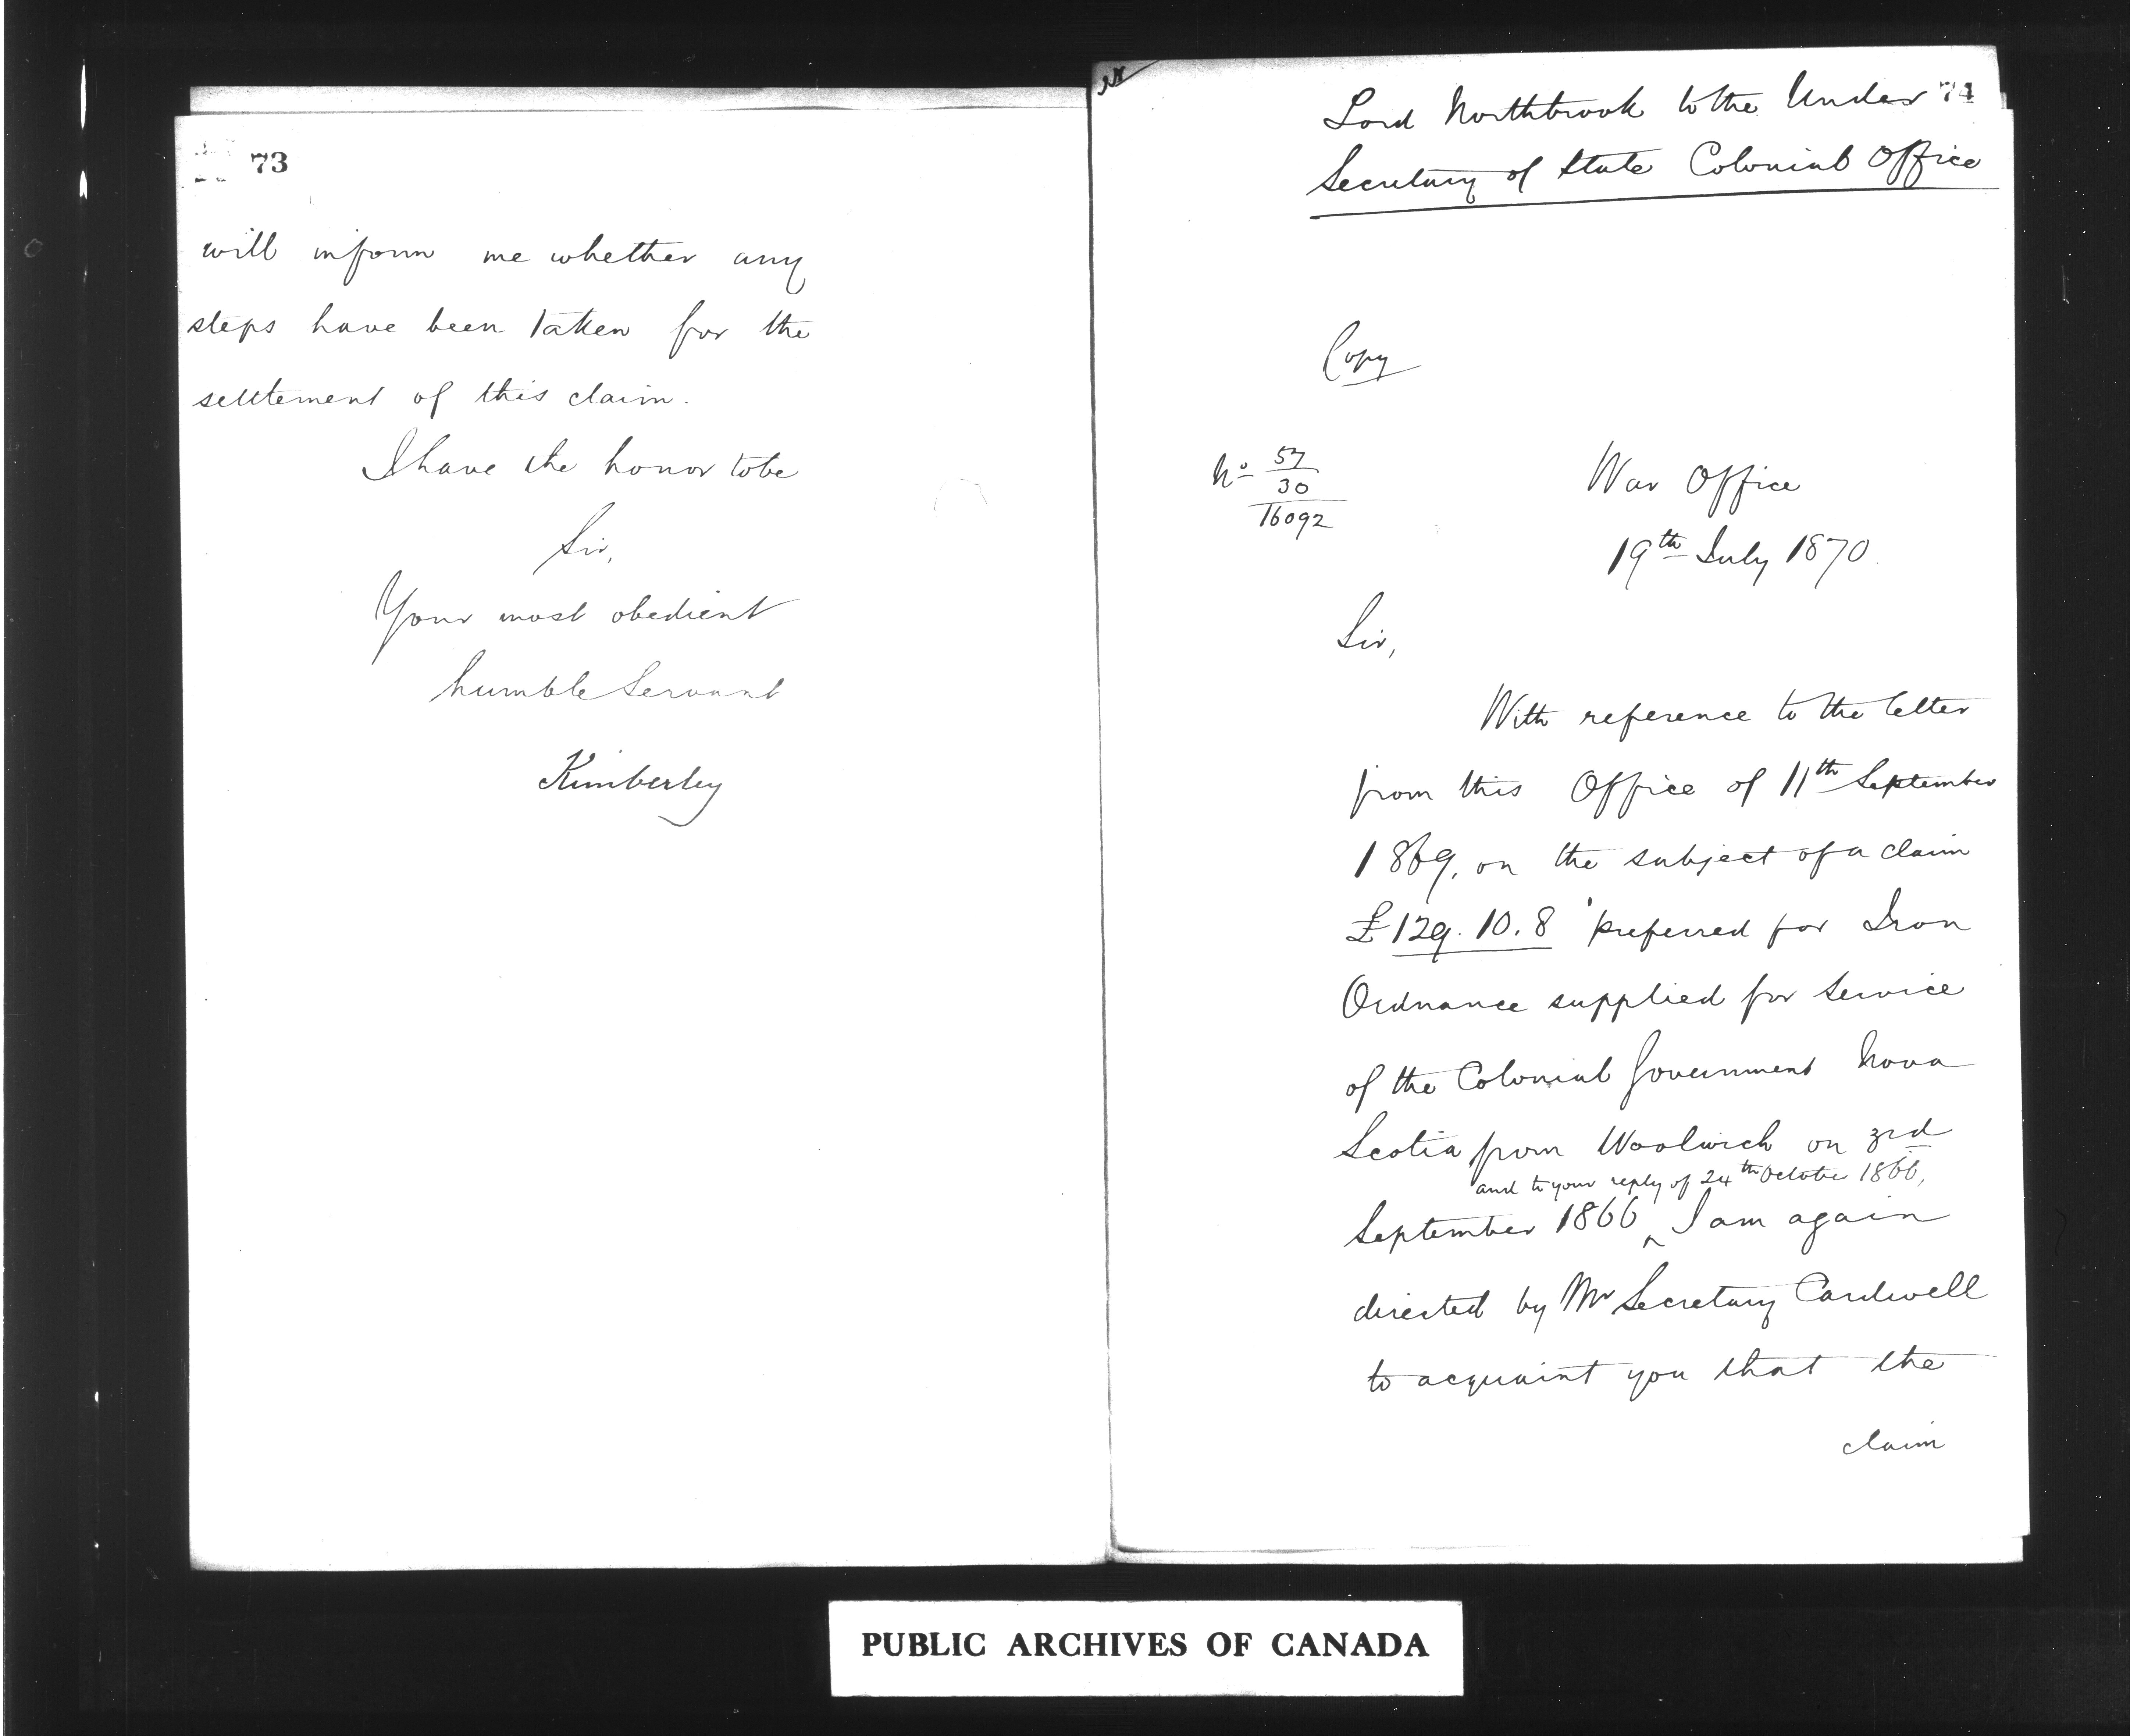 73
will inform me whether any
steps have been taken for the
settlement of this claim.
I have the honor to be
Sir,
Your most obedient
humble Servant
Kimberley
74
Lord Northbrook to the Under
Secretary of State Colonial Office
Copy
No 57
30
16092
War Office
19th July 1870.
Sir,
With reference to the letter
from this Office of 11th September
1869, on the subject of a claim
£129.10.8 preferred for Iron
Ordnance supplied for Service
of the Colonial Government Nova
Scotia from Woolwich on 3rd
and to your reply of 24th October 1866,
September 1866 ^ I am again
directed by Mr Secretary Cardwell
to acquaint you that the
claim
PUBLIC ARCHIVES OF CANADA